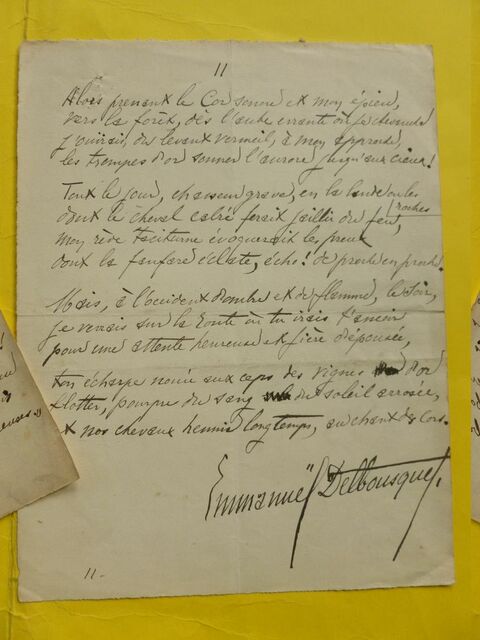 11
Alors prenant le Cor sonore et mon épieu,
vers la forêt, dès l'aube errante où je chemine
j'ouïrais, des levant vermeil, à mon approche,
les trompes d'or sonner l'aurore jusqu'aux cieux!
Tout le jour, chasseur grave, en la lande ou les
roches
dont le cheval cabré ferait jaillir du feu,
mon rêve taciturne évoquerait les preux
dont la fanfare éclate, écho! de proche en proche.
Mais, à l'occident d'ombre et de flamme, le Soir,
je verrais sur la route où tu irais t'asseoir
pour une attente heureuse et fière d'épousée,
ton écharpe nouée aux ceps des vignes d'or
flotter, pourpre du sang du soleil arrosée,
et nos chevaux hennir longtemps, au chant des Cors.
Emmanuel Delbousquet.
11-